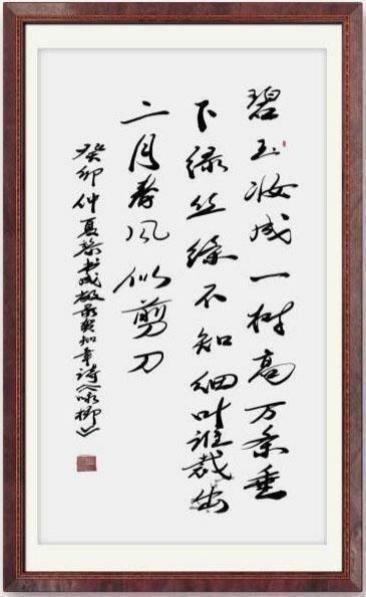 碧玉妆成一树高万条垂
下绿丝绦不知细叶谁裁出
二月春风似剪刀
癸卯仲夏书贺知章诗《咏柳》